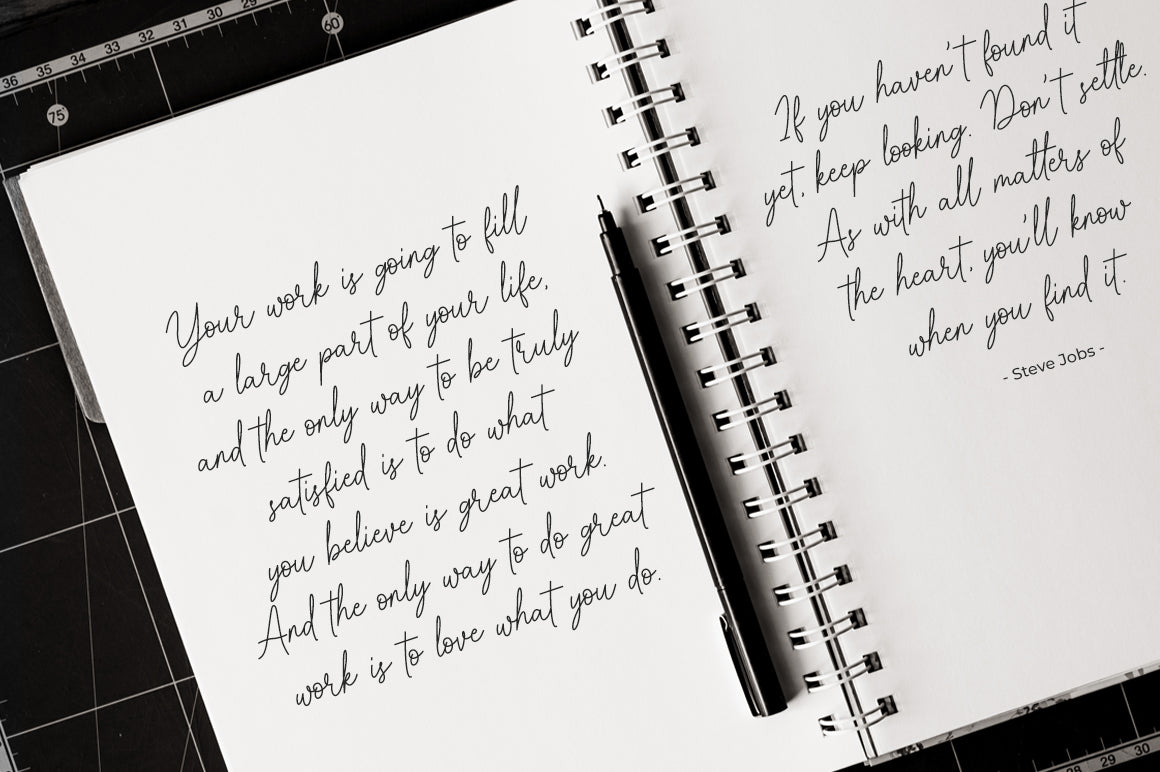 36 35 34 33 32 31 30 29
60
75
Your work is going to fill
a large part of your life,
and the only way to be truly
satisfied is to do what
you believe is great work.
And the only way to do great
work is to love what you do.
If you haven't found it
yet, keep looking. Don't settle.
As with all matters of
the heart, you'll know
when you find it.
- Steve Jobs -
28 29 30